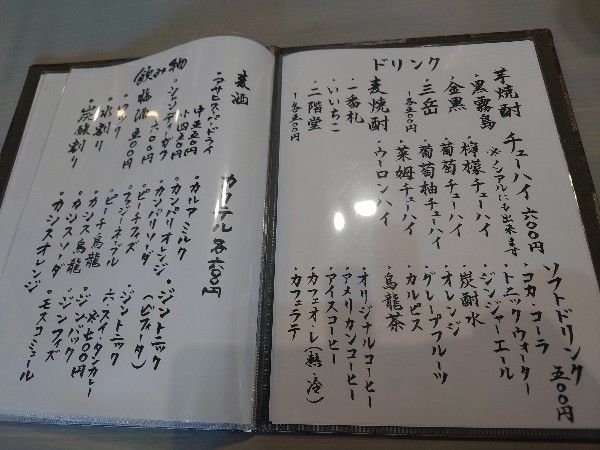 ドリンク
芋焼酎
・黒霧島
・金黒
・三岳
〜各五〇〇円
麦焼酎
・一番札
・いいちこ
・二階堂
〜各五〇〇円
チューハイ 六〇〇円
※シングルにも出来ます
・檸檬チューハイ
・葡萄チューハイ
・葡萄柚チューハイ
・莱姆チューハイ
・ウーロンハイ
ソフトドリンク
五〇〇円
・コカ・コーラ
・トニックウォーター
・ジンジャーエール
・炭酸水
・オレンジ
・グレープフルーツ
・カルピス
・烏龍茶
・オリジナルコーヒー
・アメリカンコーヒー
・アイスコーヒー
・カフェオ・レ(熱・冷)
・カフェラテ
飲み物
麦酒
・アサヒスーパードライ
中五五〇円
小四五〇円
・シャンディガフ
六〇〇円
・梅酒 五〇〇円
・ロック
・水割り
・炭酸割り
カクテル 各六〇〇円
・カルアミルク
・カンパリオレンジ
・カンパリソーダ
・ピーチフィズ
・ファジーネーブル
・ピーチ烏龍
・カシス烏龍
・カシスソーダ
・カシスオレンジ
・ジントニック
(ビフィータ)
・ジントニック
※七〇〇円
・ジンバック
・ジンフィズ
・モスコミュール